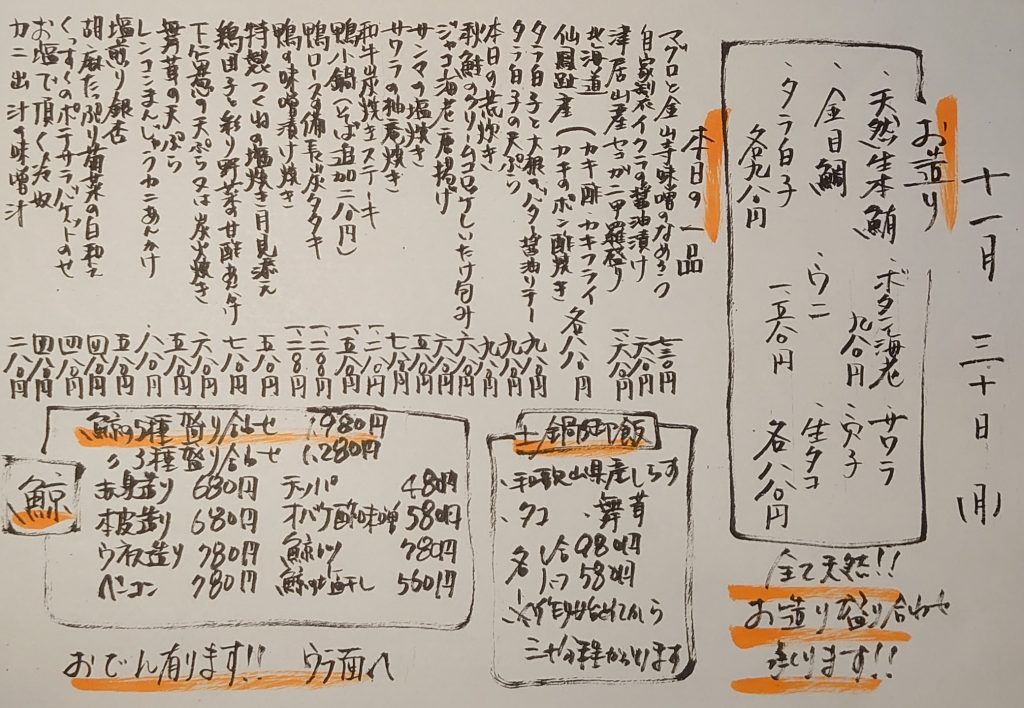 十一月三十日(月)
お造り
・天然生本鮪
・ボタン海老
・サワラ
九八〇円
・金目鯛
・ウニ
・穴子
・生タコ
・タラ白子
各九八〇円
一、五八〇円
各八八〇円
全て天然!!
お造り盛り合わせ
承ります!!
本日の一品
マグロと金山寺味噌のなめろう 七三〇円
自家製イクラの醤油漬け 六八〇円
津居山産セコガニ甲羅盛り 一、六八〇円
北海道
仙鳳趾産(カキ酢・カキフライ
カキのポン酢焼き 各八八〇円
タラ白子と大根のバター醤油ソテー 九八〇円
タラ白子の天ぷら 九八〇円
本日の荒炊き 九八〇円
秋鮭のクリームコロッケしいたけ包み 六八〇円
ジャコ海老唐揚げ 六八〇円
サンマの塩焼き 五八〇円
サワラの柚庵焼き 七八〇円
和牛炭焼きステーキ
鴨小鍋(そば追加二八〇円) 一、五八〇円
鴨ロースの備長炭タタキ
鴨の味噌漬け焼き
特製つくねの塩焼き月見添え 五八〇円
鶏団子と彩り野菜の甘酢あんかけ 七八〇円
下仁田葱の天ぷら又は炭火焼き 六八〇円
舞茸の天ぷら 五八〇円
レンコンまんじゅうカニあんかけ 八八〇円
塩煎り銀杏 五八〇円
胡麻たっぷり菊菜の白和え 四八〇円
くんすくのポテサラバゲットのせ 四八〇円
お塩で頂く冷奴 四八〇円
カニ出汁の味噌汁 二八〇円
土鍋御飯
・和歌山県産しらす
・タコ ・舞茸
各 一合980円
ハーフ580円
鯨
鯨の5種盛り合わせ 1,980円
〃 3種盛り合わせ 1,280円
赤身造り 680円
テッパ 480円
本皮造り 680円
オバケ酢味噌 580円
ウネス造り 780円
鯨カツ 780円
ベーコン 780円
鯨の塩干し 560円
おでん有ります!! ウラ面へ